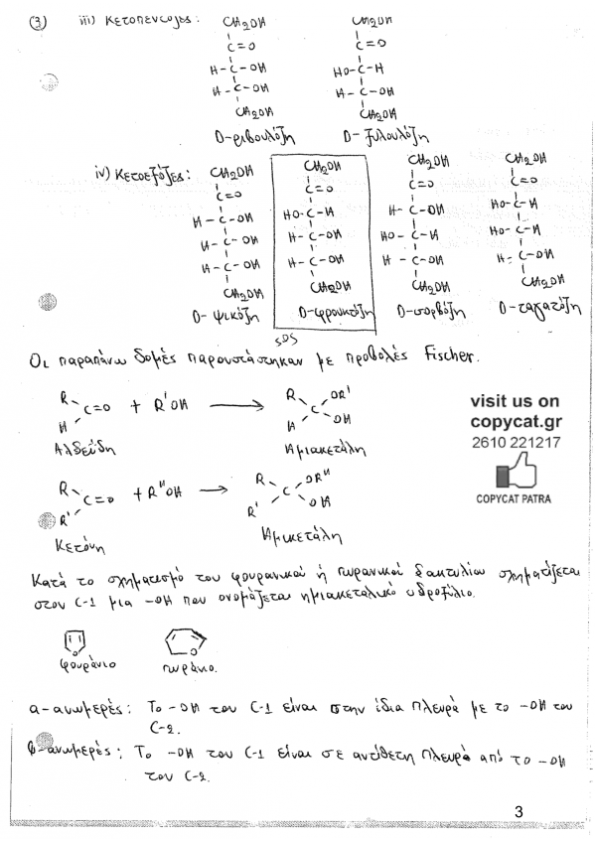 (3) iii) Κετοπεντόζες: CH₂OH CH₂OH
C=O C=O
H-C-OH HO-C-H
H-C-OH H-C-OH
CH₂OH CH₂OH
D-ριβουλόζη D-ξυλουλόζη
iv) Κετοεξόζες: CH₂OH CH₂OH CH₂OH CH₂OH
C=O C=O C=O C=O
H-C-OH HO-C-H H-C-OH HO-C-H
H-C-OH H-C-OH HO-C-H HO-C-H
H-C-OH H-C-OH H-C-OH H-C-OH
CH₂OH CH₂OH CH₂OH CH₂OH
D-ψικόζη D-φρουκτόζη D-σορβόζη D-ταγατόζη
SOS
Οι παραπάνω δομές παρουστάστηκαν με προβολές Fischer.
R C=O + R'OH R C OR'
H H OH
Αλδεΰδη Ημιακετάλη
visit us on
copycat.gr
2610 221217
COPYCAT PATRA
R C=O + R''OH R C OR''
R' R' OH
Κετόνη Ημικετάλη
Κατά το σχηματισμό του φουρανικού ή πυρανικού δακτυλίου σχηματίζεται
στον C-1 μια -OH που ονομάζεται ημιακεταλικό υδροξύλιο.
O O
φουράνιο πυράνιο.
α-ανωμερές: Το -OH του C-1 είναι στην ίδια πλευρά με το -OH του
C-2.
β-ανωμερές: Το -OH του C-1 είναι σε αντίθετη πλευρά από το -OH
του C-2.
3